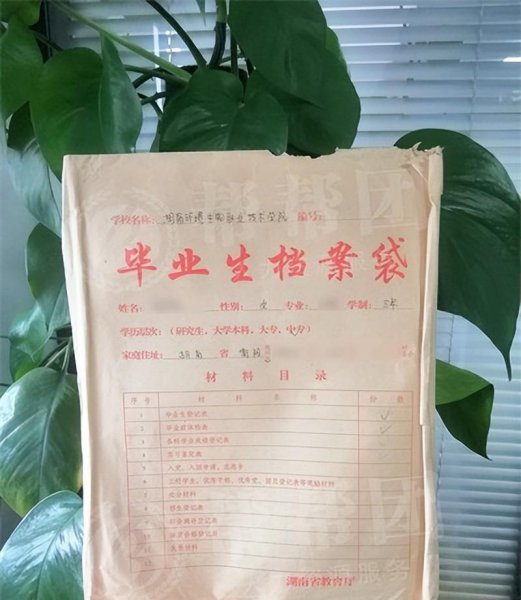 学校名称: 湖南环境生物职业技术学院 编号:
毕业生档案袋
姓名: 性别: 女 专业: 学制: 三年
学历层次:（研究生，大学本科，大专，中专）
家庭住址: 湖南 省 衡阳
材料目录
序号 材料名称 份数
1 毕业生登记表 ✓
2 毕业前体检表 ✓
3 各科学业成绩登记表
4 实习鉴定表
5 入党、入团申请、志愿书
6 三好学生，优秀干部，优秀党、团员登记表等奖励材料
7 处分材料
8 招生登记表
9
10
11
12
湖南省教育厅
帮帮团